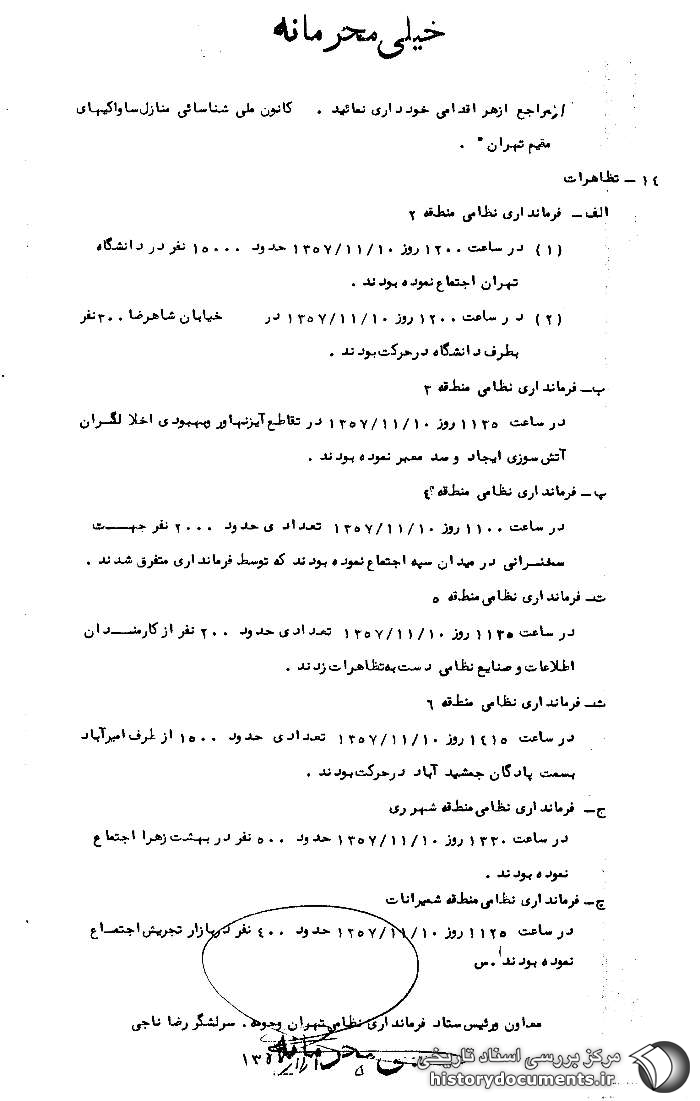 خیلی محرمانه
مراجع ازهر اقدامی خودداری نمائید . کانون ملی شناسائی منازل ساواکیهای
مقیم تهران " .
١٤ – تظاهرات
الف – فرمانداری نظامی منطقه ٢
(١) در ساعت ١٢٠٠ روز ١٣٥٧/١١/١٠ حدود ١٥٠٠٠ نفر در دانشگاه
تهران اجتماع نموده بودند .
(٢) در ساعت ١٢٠٠ روز ١٣٥٧/١١/١٠ در خیابان شاهرضا ٣٠٠ نفر
بطرف دانشگاه درحرکت بودند .
ب – فرمانداری نظامی منطقه ٣
در ساعت ١١٣٥ روز ١٣٥٧/١١/١٠ در تقاطع آیزنهاور وبهبودی اخلالگران
آتش سوزی ایجاد و سد معبر نموده بودند .
پ – فرمانداری نظامی منطقه ٤
در ساعت ١١٠٠ روز ١٣٥٧/١١/١٠ تعدادی حدود ٢٠٠٠ نفر جهت
سخنرانی در میدان سپه اجتماع نموده بودند که توسط فرمانداری متفرق شدند .
ت – فرمانداری نظامی منطقه ٥
در ساعت ١١٣٥ روز ١٣٥٧/١١/١٠ تعدادی حدود ٢٠٠ نفر از کارمندان
اطلاعات و صنایع نظامی دست به تظاهرات زدند .
ث – فرمانداری نظامی منطقه ٦
در ساعت ١٤١٥ روز ١٣٥٧/١١/١٠ تعدادی حدود ١٥٠٠ از طرف امیرآباد
بسمت پادگان جمشید آباد درحرکت بودند .
ج – فرمانداری نظامی منطقه شهر ری
در ساعت ١٣٣٠ روز ١٣٥٧/١١/١٠ حدود ٥٠٠ نفر در بهشت زهرا اجتماع
نموده بودند .
چ – فرمانداری نظامی منطقه شمیرانات
در ساعت ١١٢٥ روز ١٣٥٧/١١/١٠ حدود ٤٠٠ نفر دربازار تجریش اجتماع
نموده بودند . س
معاون ورئیس ستاد فرمانداری نظامی تهران وحومه . سرلشگر رضا ناجی
مرکز بررسی اسناد تاریخی
historydocuments.ir